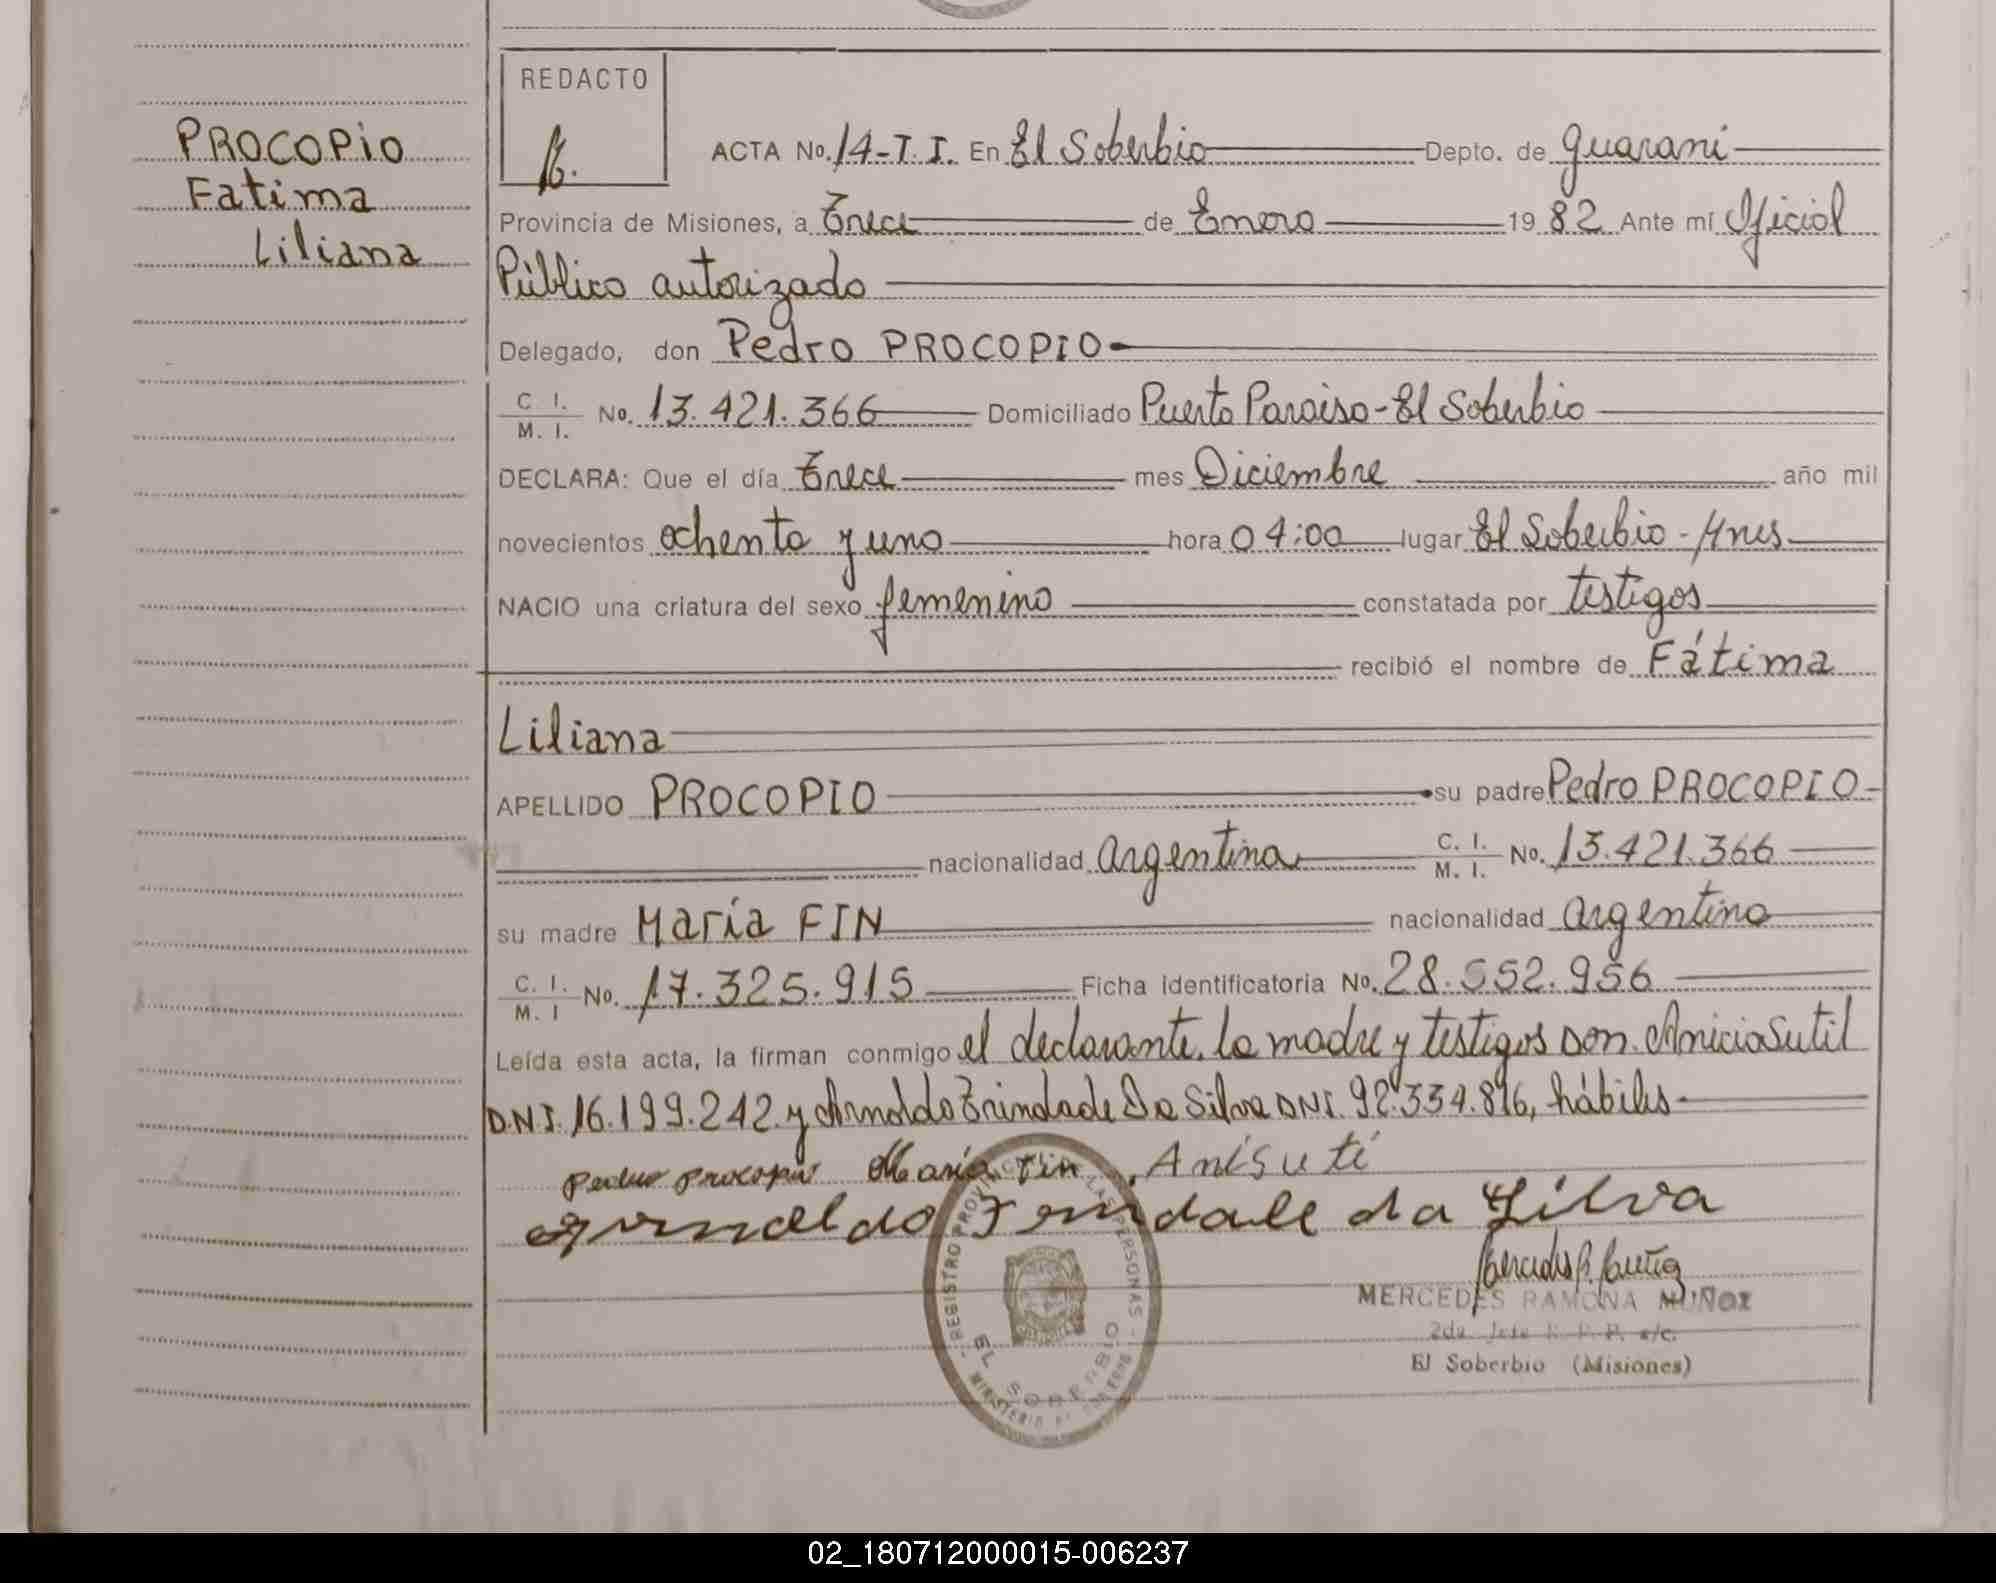 PROCOPIO
Fatima
Liliana
REDACTO
ACTA No. 14-T.I. En El Soberbio Depto. de Guarani
Provincia de Misiones, a Trece de Enero 1982 Ante mí Oficial
Público autorizado
Delegado, don Pedro PROCOPIO
C. I. / M. I. No. 13.421.366 Domiciliado Puerto Paraiso-El Soberbio
DECLARA: Que el día Trece mes Diciembre año mil
novecientos ochenta y uno hora 04:00 lugar El Soberbio - Mnes
NACIO una criatura del sexo femenino constatada por testigos
recibió el nombre de Fátima
Liliana
APELLIDO PROCOPIO su padre Pedro PROCOPIO
nacionalidad argentina C. I. / M. I. No. 13.421.366
su madre María FIN nacionalidad argentina
C. I. / M. I No. 17.325.915 Ficha identificatoria No. 28.552.956
Leída esta acta, la firman conmigo el declarante, la madre y testigos Don Anicio Sutil
D.N.I. 16.199.242 y Arnoldo Trindade Da Silva DNI. 92.334.816, hábiles
Pedro Procopio Maria Fin Anisuti
Arnaldo Trindade da Silva
REGISTRO PROVINCIAL DE LAS PERSONAS
EL SOBERBIO
MERCEDES RAMONA MUÑOZ
2da Jefe R. P. P. a/c.
El Soberbio (Misiones)
02_180712000015-006237